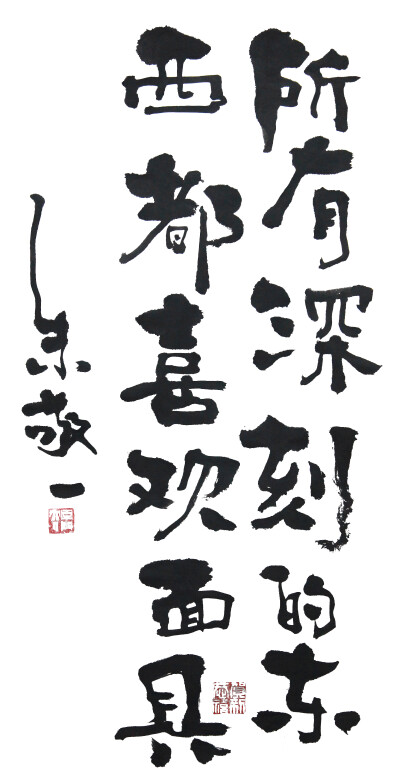 所有深刻的东
西都喜欢面具
朱敬一